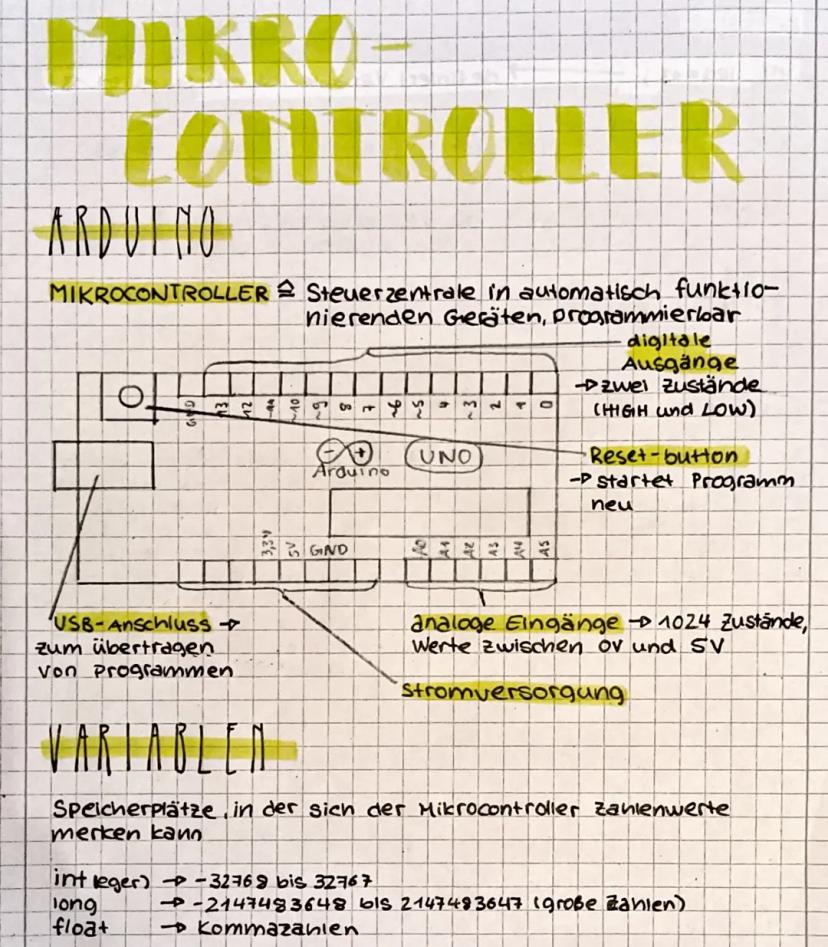 MIKRO-
CONTROLLER
ARDUINO
MIKROCONTROLLER ≙ Steuerzentrale in automatisch funktio-
nierenden Geräten, programmierbar
digitale
Ausgänge
→ zwei Zustände
(HIGH und LOW)
GND 13 12 ~11 ~10 ~9 8 7 ~6 ~5 4 ~3 2 1 0
Arduino
UNO
Reset-button
→ startet Programm
neu
3,3V 5V GND A0 A1 A2 A3 A4 A5
USB-Anschluss →
zum übertragen
von Programmen
analoge Eingänge → 1024 Zustände,
Werte zwischen 0V und 5V
Stromversorgung
VARIABLEN
Speicherplätze, in der sich der Mikrocontroller Zahlenwerte
merken kann
int(eger) → -32768 bis 32767
long → -2147483648 bis 2147483647 (große Zahlen)
float → Kommazahlen